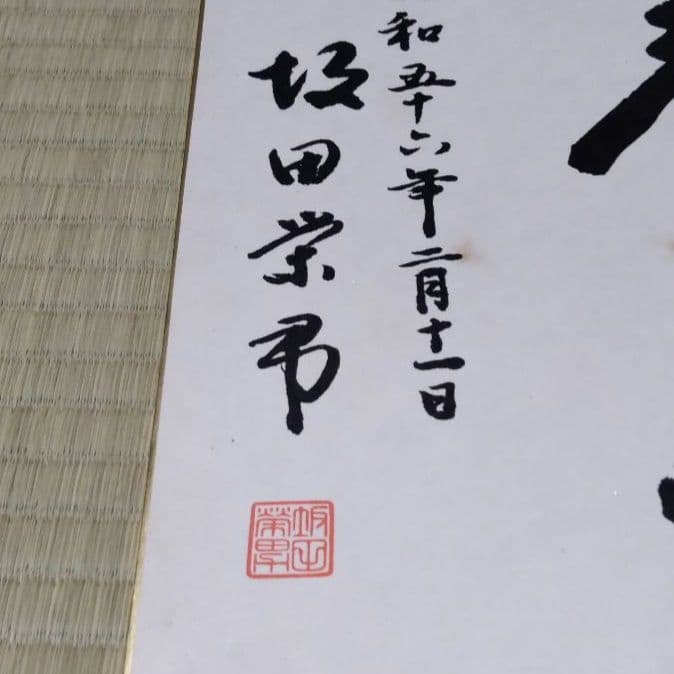 和五十六年二月十一日
坂田栄男
坂田
榮男